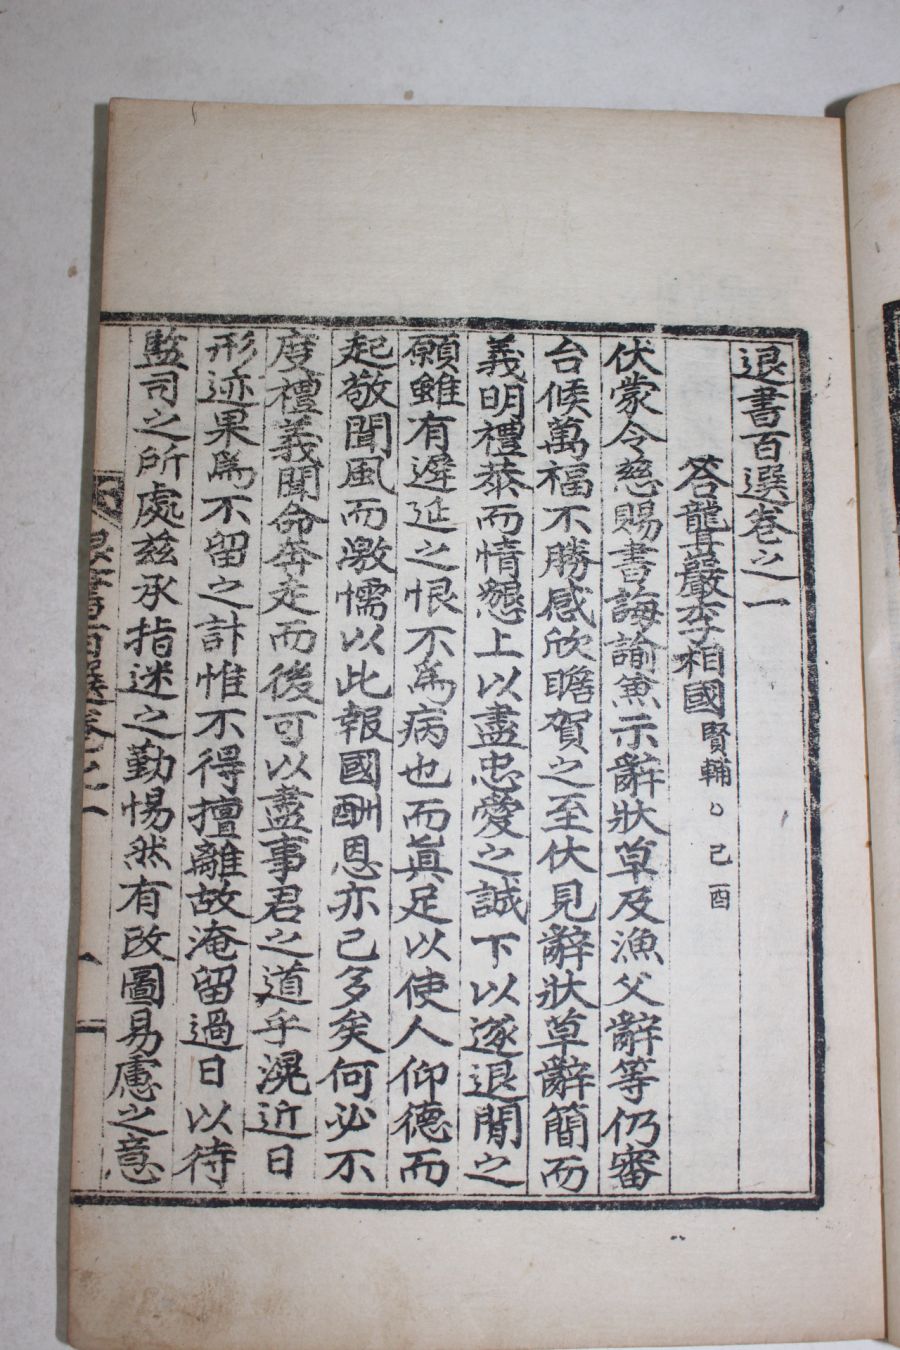 退書百選卷之一
答聾巖李相國賢輔〻己酉
伏蒙令慈賜書誨諭兼示辭狀草及漁父辭等仍審
台候萬福不勝感欣瞻賀之至伏見辭狀草辭簡而
義明禮恭而情懇上以盡忠愛之誠下以遂退閒之
願雖有遲延之恨不爲病也而眞足以使人仰德而
起敬聞風而激懦以此報國酬恩亦已多矣何必不
度禮義聞命奔走而後可以盡事君之道乎滉近日
形迹果爲不留之計惟不得擅離故淹留過日以待
監司之所處玆承指迷之勤惕然有改圖易慮之意
退書百選卷之一
一